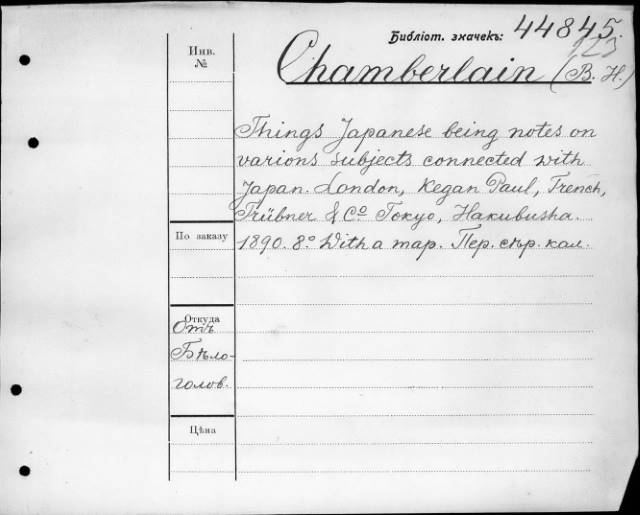 Библіот. значекъ: 44845.
123
Инв.
№
Chamberlain (B. H.)
Things Japanese being notes on
varions subjects connected with
Japan. London, Kegan Paul, Trench,
Trübner & Cº Tokyo, Hakubusha.
1890. 8º With a map. Пер. сѣр. кол.
По заказу
Откуда
Отъ
Бѣло-
голов.
Цѣна